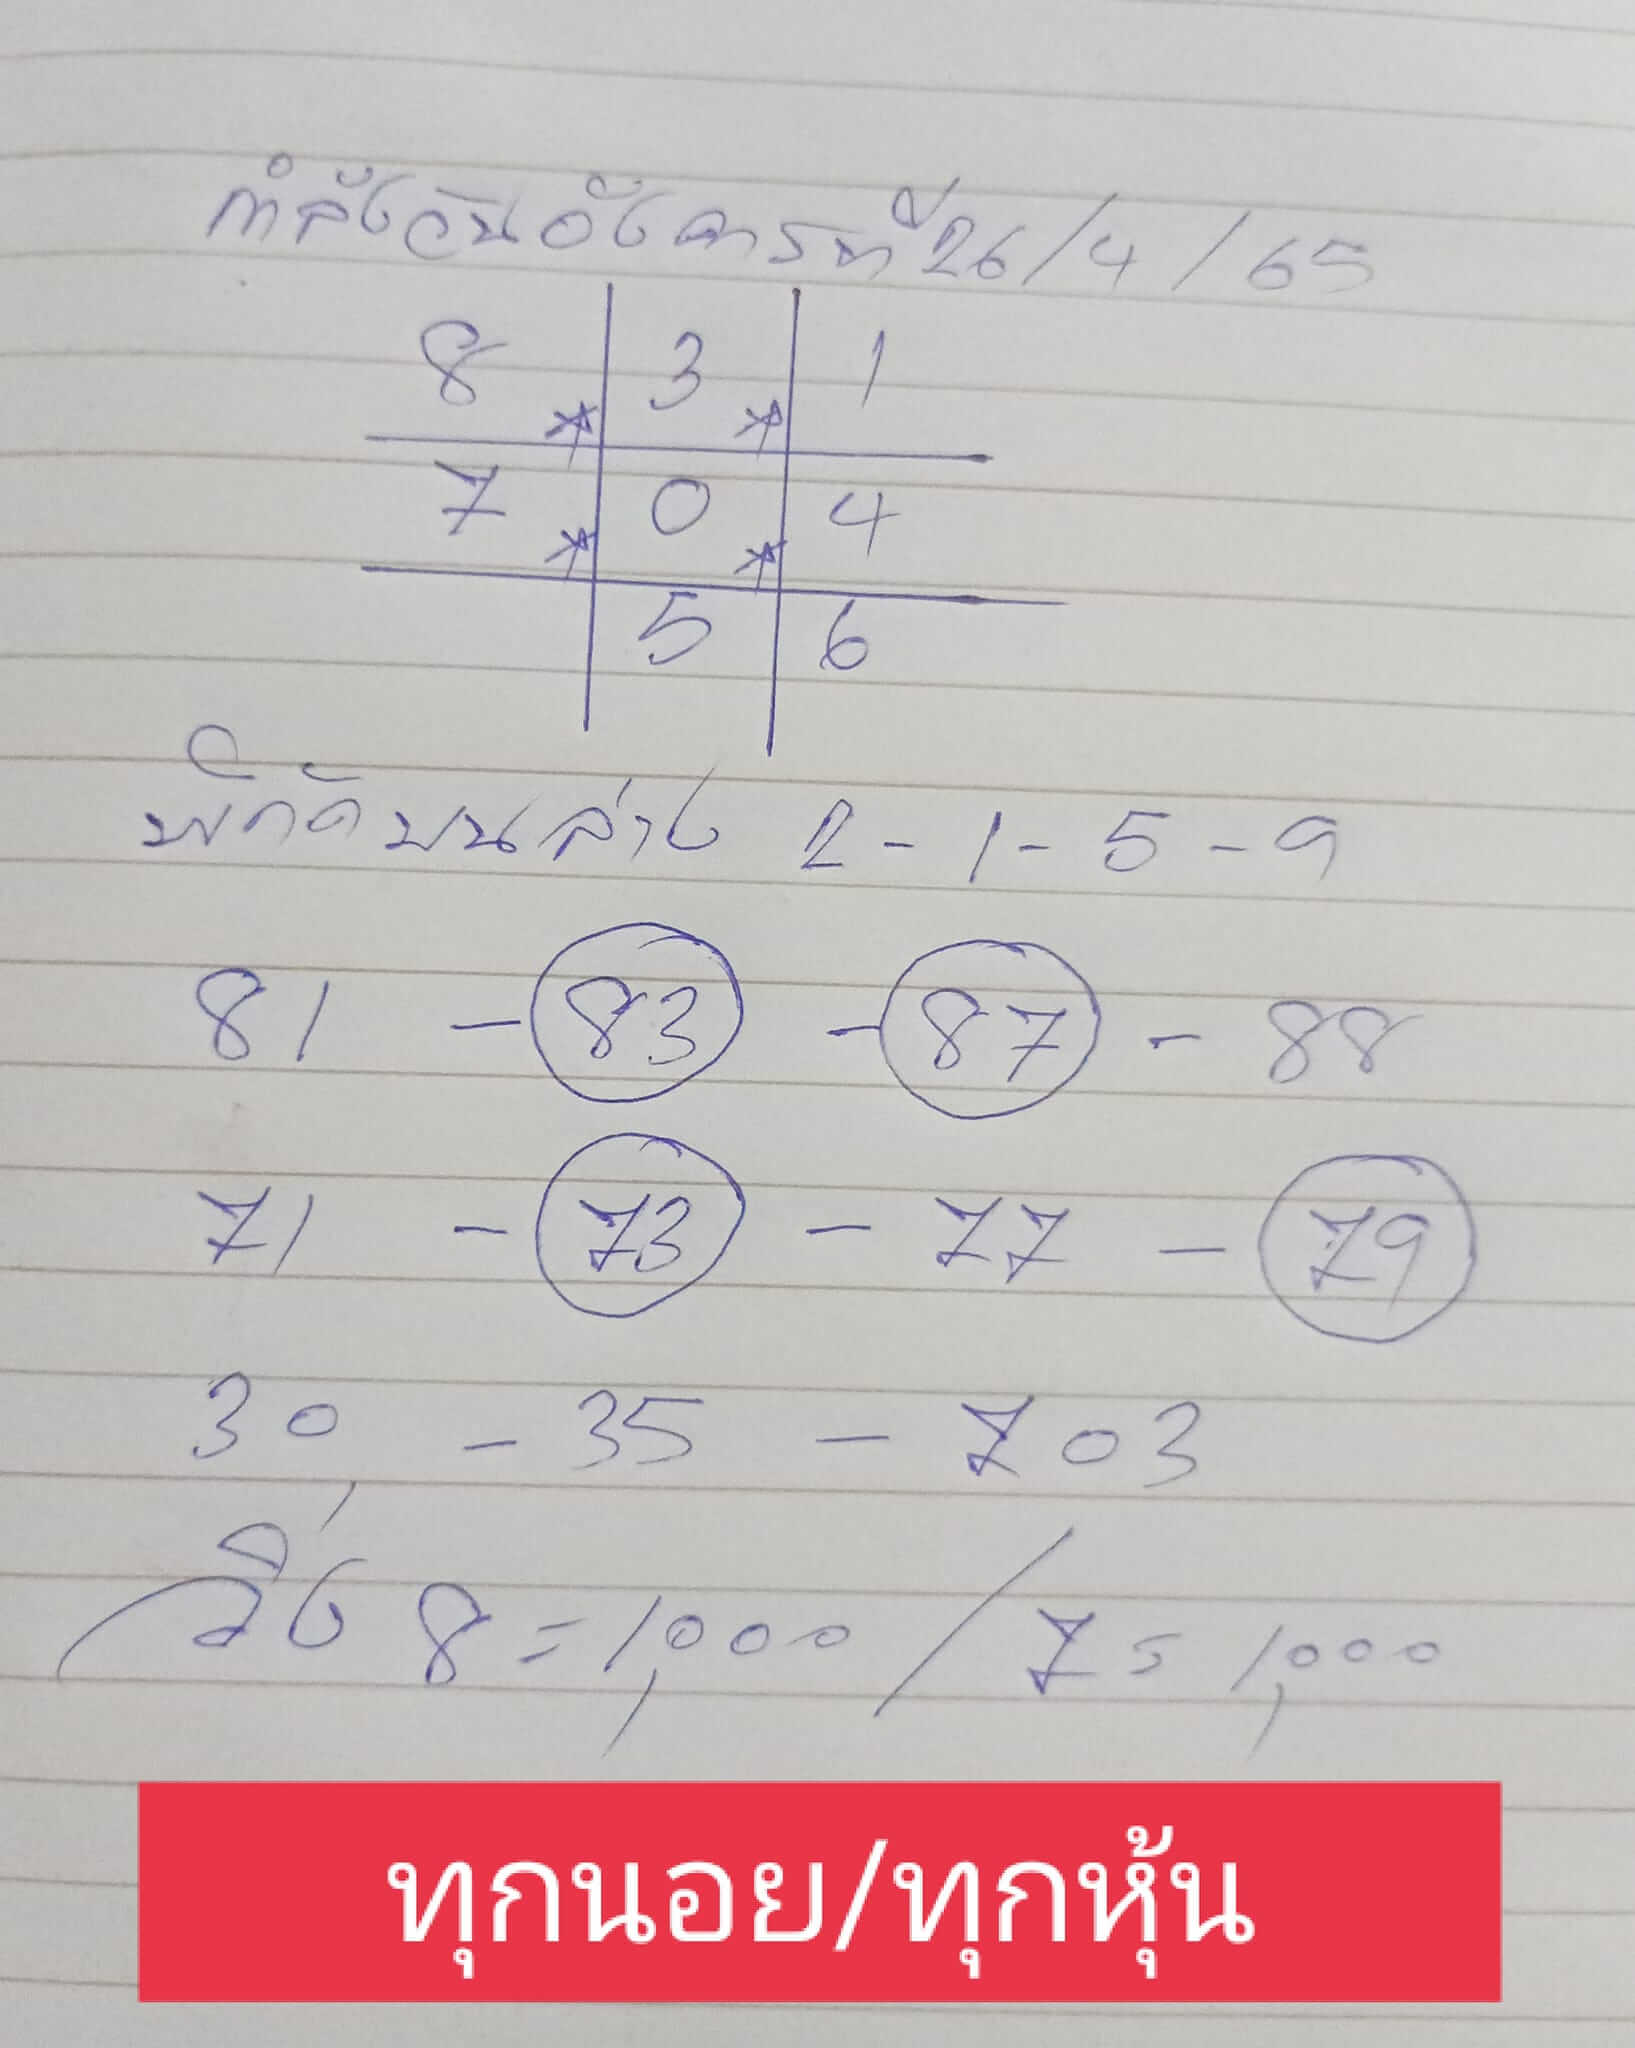 กำลังวันอังคารที่ 26/4/65
8 3 1
7 0 4
5 6
พิกัดบนล่าง 2-1-5-9
81 - 83 - 87 - 88
71 - 73 - 77 - 79
30 - 35 - 703
วิ่ง 8 = 1,000 / 7 = 1,000
ทุกนอย/ทุกหุ้น